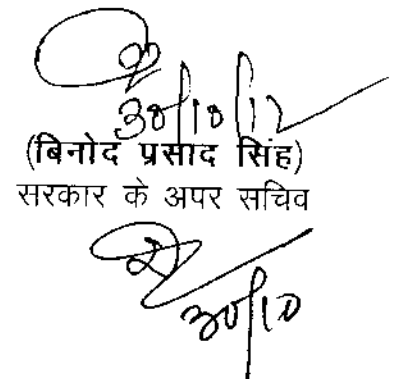 30/10/12
(बिनोद प्रसाद सिंह)
सरकार के अपर सचिव
30/10